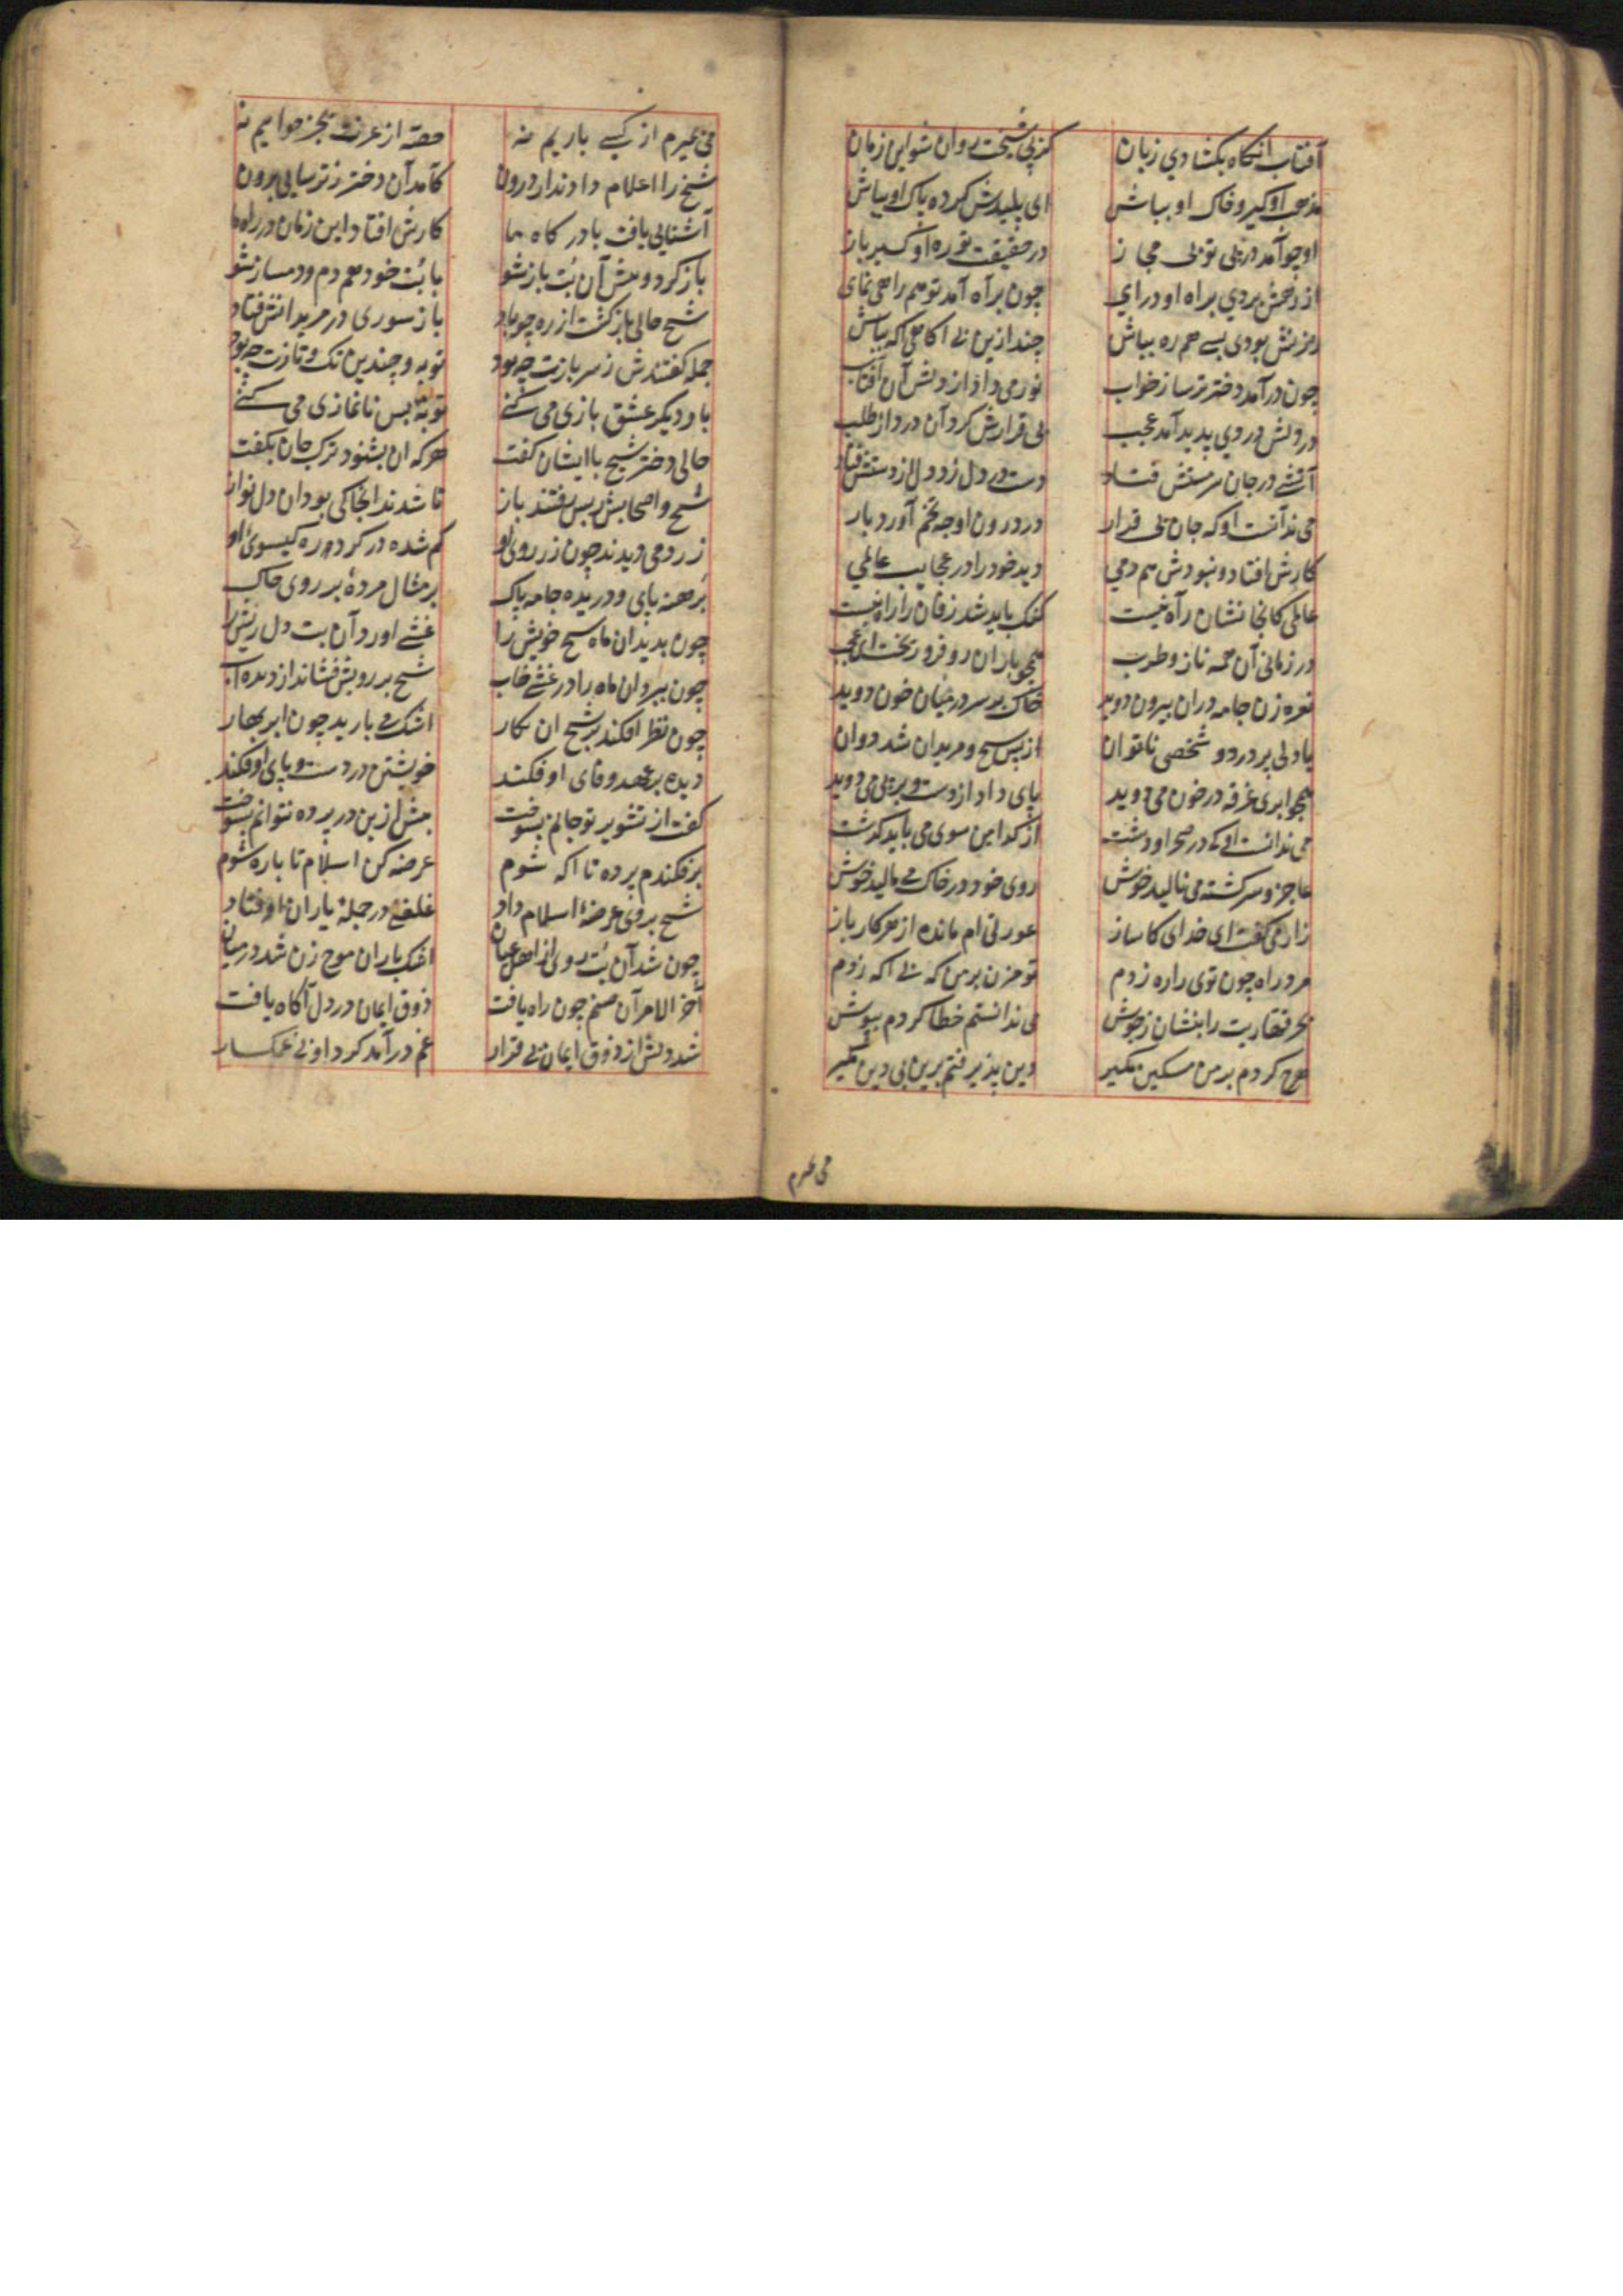 آفتاب آنکاه بکشادي زبان کز پی شیخت روان شو این زمان
مذهب او کیر و خاک او بباش ای پلیدش کرده پاک او بباش
او چو آمد در ره تو بی مجاز در حقیقت تو ره او کیر باز
از رهش بردي براه او در ای چون براه آمد تو هم راهی نمای
رهزنش بودی بسی همره بباش چند ازین بی آکاهی آکه بباش
چون در آمد دختر ترسا ز خواب نور می داد از دلش آن آفتاب
در دلش دردي پدید آمد عجب بی قرارش کرد آن درد از طلب
آتشی در جان سرمستش فتاد دست در دل زد دل از دستش فتاد
می ندانست او که جان بی قرار در درون او چه تخم آورد بار
کارش افتاد و نبودش هم دمي دید خود را در عجایب عالمي
عالمی کانجا نشان راه نیست کنک باید شد زفان را راه نیست
در زمانی آن همه ناز و طرب همچو باران رو فرو ریخت ای عجب
نعره زن جامه دران بیرون دوید خاک بر سر در میان خون دوید
با دلی پر درد و شخصی ناتوان از پس شیخ و مریدان شد دوان
همچو ابری غرقه در خون می دوید پای داد از دست و بر پی می دوید
می ندانست او که در صحرا و دشت از کدامین سوی می باید کذشت
عاجز و سرکشته می نالید خوش روی خود در خاک می مالید خوش
زار می کفت ای خدای کارساز عورتی ام مانده از هر کار باز
مرد راه چون توی را ره زدم تو مزن بر من که بی آکه زدم
بحر قهاریت را بنشان ز جوش می ندانستم خطا کردم بپوش
هرچ کردم بر من مسکین مکیر دین پذیرفتم برین بی دین مکیر
می میرم از کسی یاریم نه حصه از عزت بجز خواریم نه
شیخ را اعلام دادند از درون کامد آن دختر ز ترسایی برون
آشنایی یافت با درکاه ما کارش افتاد این زمان در راه ما
باز کرد و پیش آن بت باز شو با بت خود همدم و دمساز شو
شیخ حالی بازکشت از ره چو باد باز سوری در مریدانش فتاد
جمله کفتندش ز سر بازت چه بود توبه و چندین تک و تازت چه بود
بار دیکر عشق بازی می کنی توبۀ بس نانمازی می کنی
حالی دختر شیخ با ایشان کفت هر که ان بشنود ترک جان بکفت
شیخ و اصحابش ز پس رفتند باز تا شدند انجا کی بود ان دل نواز
زرد می دیدند چون زر روی او کم شده در کرد ره کیسوی او
برهنه پای و دریده جامه پاک بر مثال مردۀ بر روی خاک
چون بدید ان ماه شیخ خویش را غشی اورد آن بت دل ریش را
چون ببرد ان ماه را در غشی خاب شیخ بر رویش فشاند از دیده اب
چون نظر افکند بر شیخ ان نکار اشک می بارید چون ابر بهار
دیده بر عهد و فای او فکند خویشتن در دست و پای او فکند
کفت از تشویر تو جانم بسوخت بیش ازین در پرده نتوانم بسوخت
برفکندم پرده تا اکه شوم عرضه کن اسلام تا باره شوم
شیخ بر وی عرضۀ اسلام داد غلغلی در جملۀ یاران اوفتاد
چون شد آن بت روی از اهل عیان اشک باران موج زن شد در میان
آخر الامر آن صنم چون راه یافت ذوق ایمان در دل آکاه یافت
شد دلش از ذوق ایمان بی قرار غم در آمد کرد او بی غمکسار
می میرم